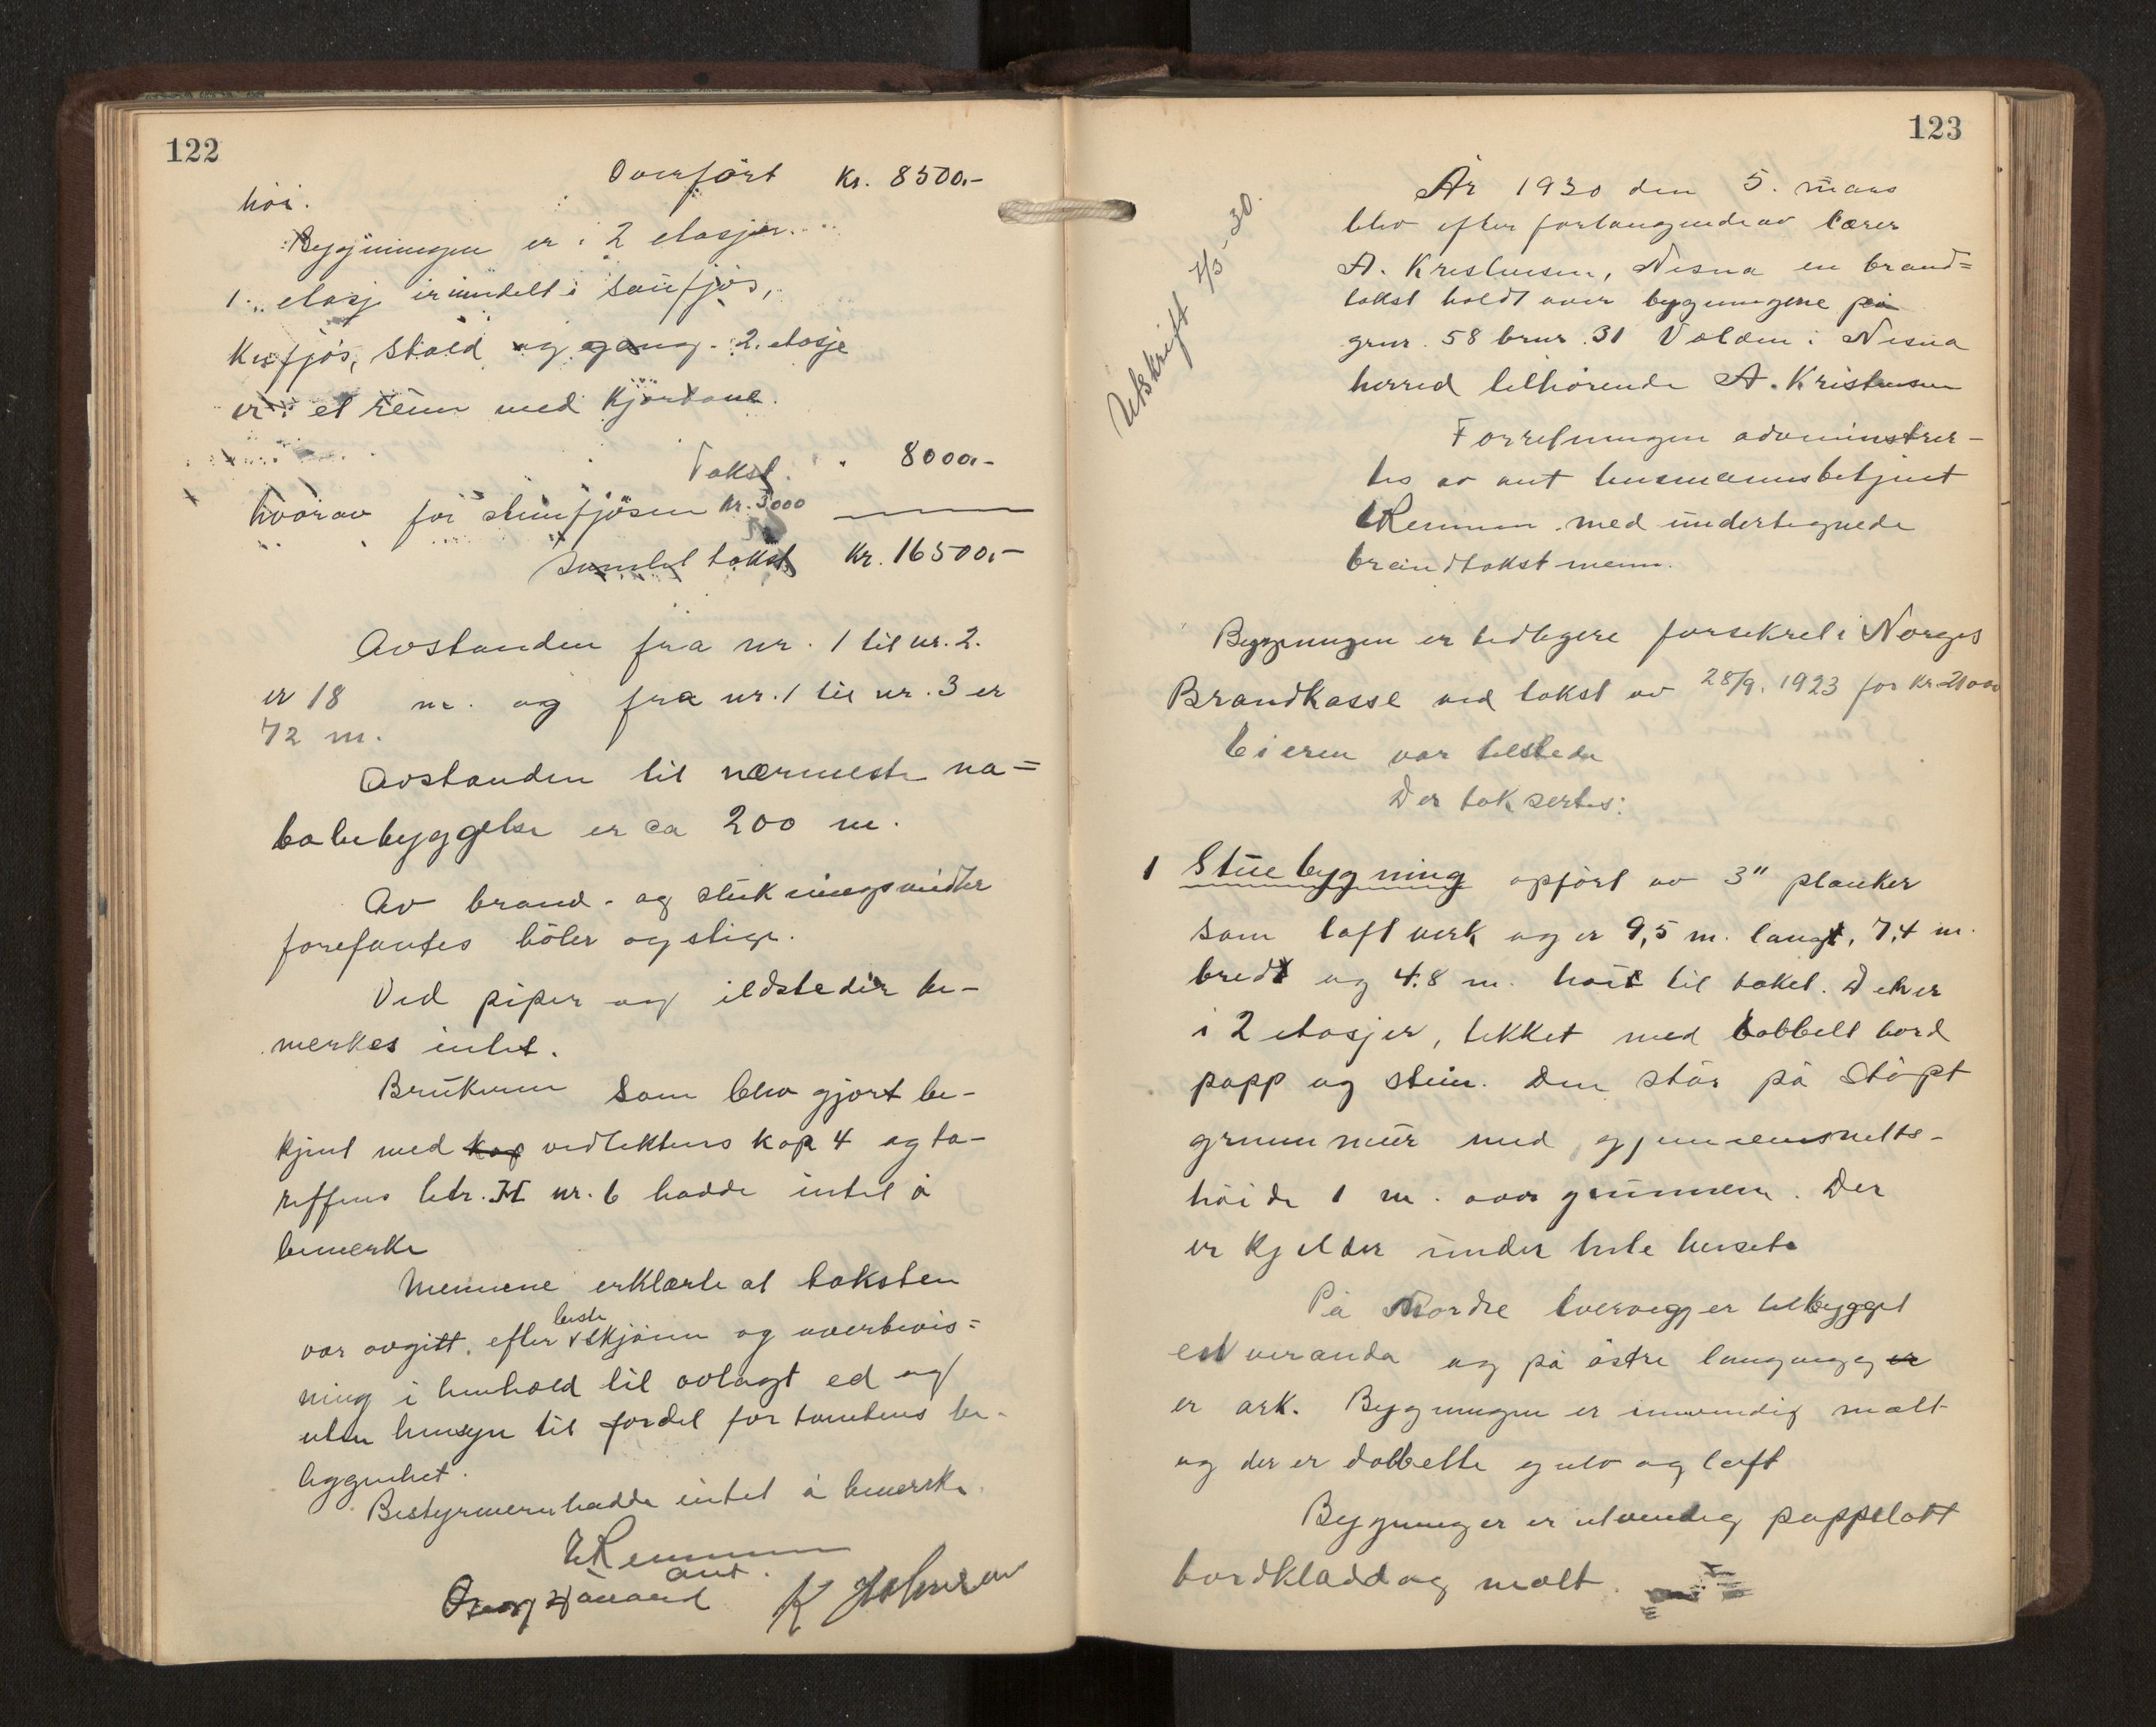 122
Overført Kr. 8500.-
høi.
Bygningen er i 2 etasjer.
1. etasje er inndelt i saufjøs,
Kufjøs, Stald og gang. 2. etasje
er i et rum med Kjørbane.
Takst. " 8000.-
hvorav for stenfjøsen kr. 3000
Samlet takst Kr. 16500.-
Avstanden fra nr. 1 til nr. 2.
er 18 m. og fra nr. 1 til nr. 3 er
72 m.
Avstanden til nærmeste na=
bobebyggelse er ca 200 m.
Av brand- og slukningsmidler
forefantes bøler og stige.
Ved piper og ildsteder be-
merkes intet.
Brukeren som blev gjort be-
kjent med kap vedtektens kap 4 og ta-
riffens litr. H nr. 6 hadde intet å
bemerke
Mennene erklærte at taksten
beste
var avgitt, efter skjønn og overbevis=
ning i henhold til avlagt ed og
uten hensyn til fordel for tomtens be-
liggenhet.
Bestyreren hadde intet å bemerke.
Remmen
ant.
K Johnsen
123
Utskrift 7/3-30.
År 1930 den 5. mars
blev efter forlangende av lærer
A. Kristensen, Nesna en brand=
takst holdt over bygningene på
gnr. 58 bnr. 31 Volden i Nesna
herred tilhørende A. Kristensen
Forretningen administrer-
tes av ant lensmannsbetjent
Remmen med undertegnede
brandtakstmenn.
Bygningen er tidligere forsikret i Norges
Brandkasse ved takst av 28/9. 1923 for kr. 21000
Eieren var tilstede
Der taksertes:
1 Stuebygning opført av 3" planker
som laftverk og er 9,5 m. langt, 7,4 m.
bredt og 4,8 m. høit til taket. Det er
i 2 etasjer, tekket med dobbelt bord
papp og sten. Den står på støpt
grunnmur med gjennemsnitts-
høide 1 m. over grunnen. Der
er kjelder under hele huset.
På nordre tvervegg er tilbygget
en veranda og på østre langvegg er
er ark. Bygningen er innvendig malt
og der er dobbelte gulv og loft
Bygningen er utvendig pappslått
bordkladd og malt.